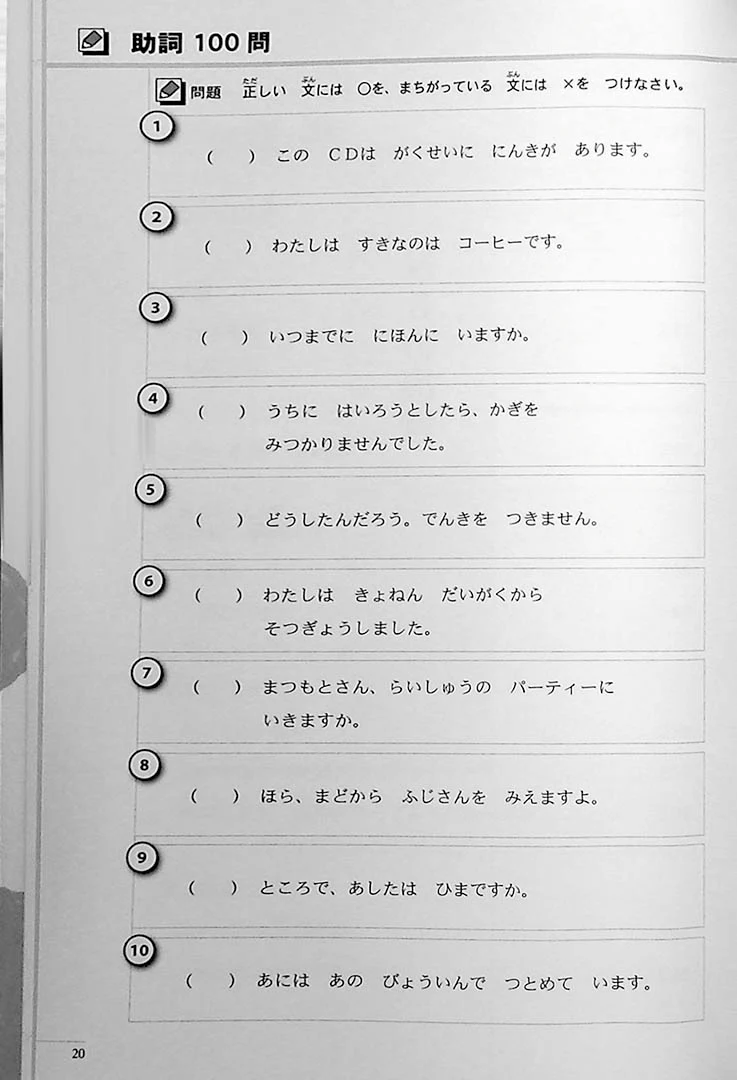 助詞 100 問
問題 正しい 文には ○を、まちがっている 文には ×を つけなさい。
1
( ) この CDは がくせいに にんきが あります。
2
( ) わたしは すきなのは コーヒーです。
3
( ) いつまでに にほんに いますか。
4
( ) うちに はいろうとしたら、かぎを
みつかりませんでした。
5
( ) どうしたんだろう。でんきを つきません。
6
( ) わたしは きょねん だいがくから
そつぎょうしました。
7
( ) まつもとさん、らいしゅうの パーティーに
いきますか。
8
( ) ほら、まどから ふじさんを みえますよ。
9
( ) ところで、あしたは ひまですか。
10
( ) あには あの びょういんで つとめて います。
20